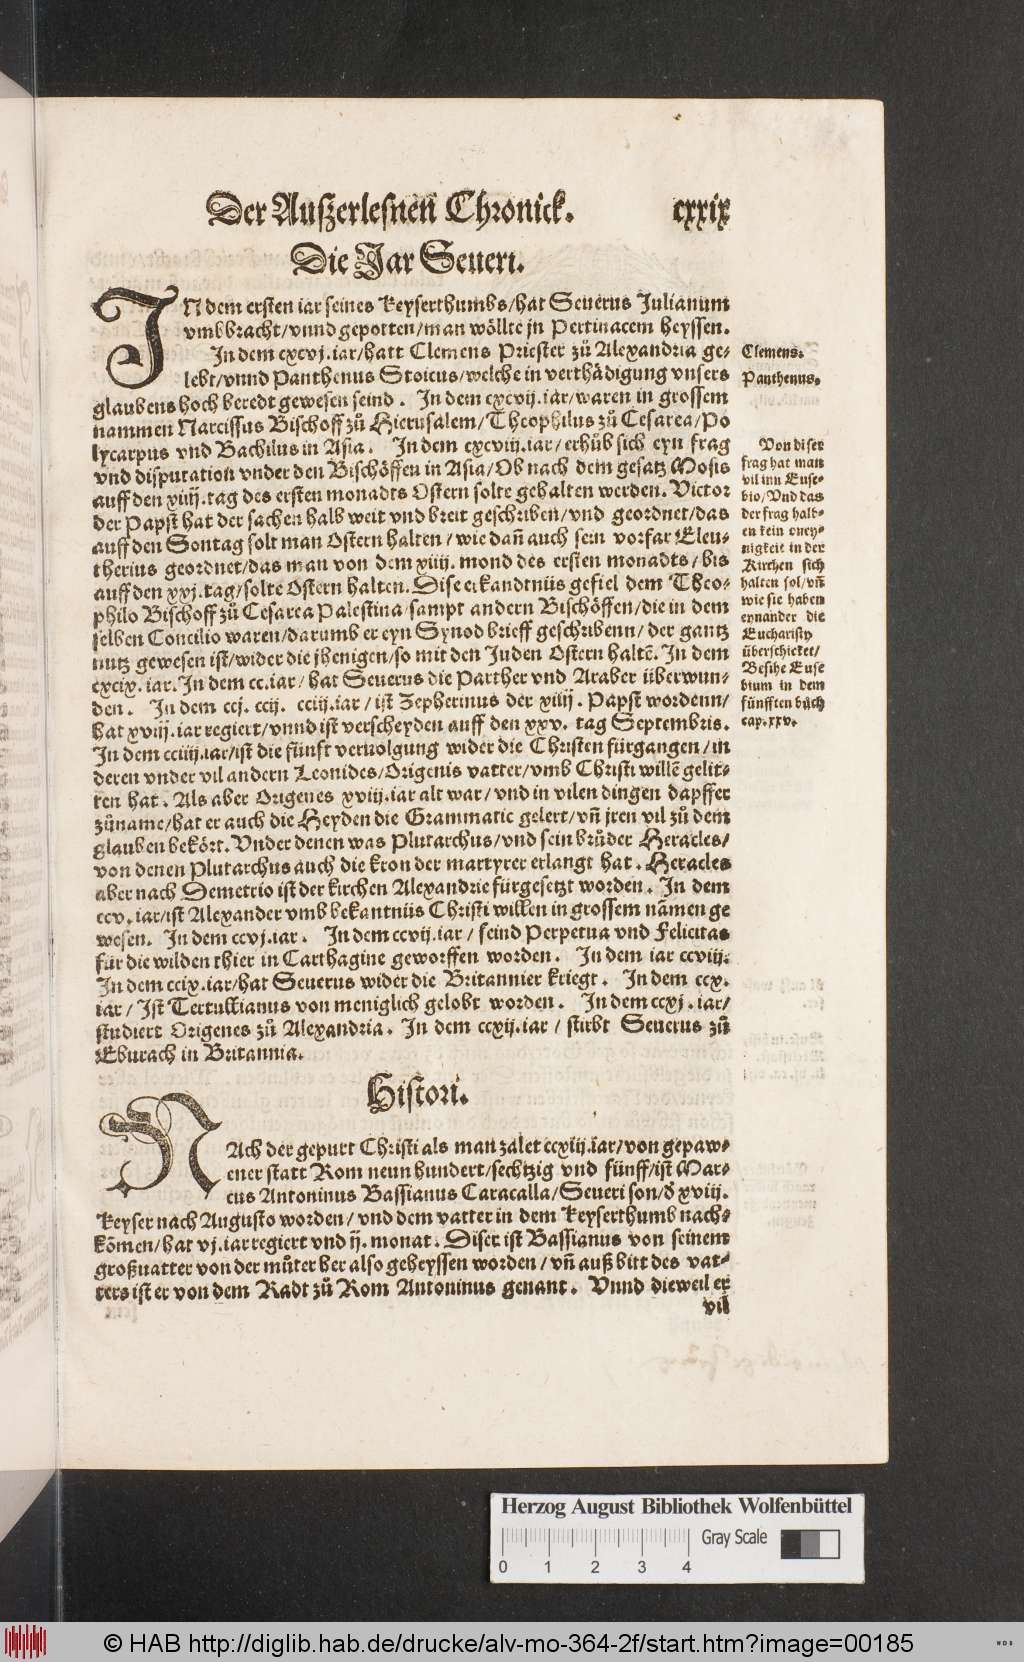 Der Auſzerleſnen Chronick. cxxix
Die Jar Seueri.
IN dem erſten iar ſeines Keyſerthumbs/hat Seuerus Julianum
vmbbracht/vnnd gepotten/man wöllte jn Pertinacem heyſſen.
In dem cxcvj.iar/hatt Clemens Prieſter zů Alexandria ge-
lebt/vnnd Panthenus Stoicus/welche in verthädigung vnſers
glaubens hoch beredt geweſen ſeind. In dem cxcvij.iar/waren in groſſem
nammen Narciſſus Biſchoff zů Hieruſalem/Theophilus zů Ceſarea/Po
lycarpus vnd Bachilus in Aſia. In dem cxcviij.iar/erhůb ſich eyn frag
vnd diſputation vnder den Biſchöffen in Aſia/Ob nach dem geſatz Moſis
auff den xiiij.tag des erſten monadts Oſtern ſolte gehalten werden. Victor
der Papſt hat der ſachen halb weit vnd breit geſchriben/vnd geordnet/das
auff den Sontag ſolt man Oſtern halten/wie dañ auch ſein vorfar Eleu-
therius geordnet/das man von dem xiiij. mond des erſten monadts/bis
auff den xxj.tag/ſolte Oſtern halten. Diſe erkandtnüs gefiel dem Theo-
philo Biſchoff zů Ceſarea Paleſtina/ſampt andern Biſchöffen/die in dem
ſelben Concilio waren/darumb er eyn Synod brieff geſchribenn/der gantz
nutz geweſen iſt/wider die jhenigen/ſo mit den Juden Oſtern haltẽ. In dem
cxcix.iar. In dem cc.iar/hat Seuerus die Parther vnd Araber überwun-
den. In dem ccj. ccij. cciij.iar/iſt Zepherinus der xiiij. Papſt wordenn/
hat xviij.iar regiert/vnnd iſt verſcheyden auff den xxv. tag Septembris.
In dem cciiij.iar/iſt die fünfft veruolgung wider die Chriſten fürgangen/in
deren vnder vil andern Leonides/Origenis vatter/vmb Chriſti willẽ gelit-
ten hat. Als aber Origenes xviij.iar alt war/vnd in vilen dingen dapffer
zůname/hat er auch die Heyden die Grammatic gelert/vñ jren vil zů dem
glauben bekört. Vnder denen was Plutarchus/vnd ſein brůder Heracles/
von denen Plutarchus auch die kron der martyrer erlangt hat. Heracles
aber nach Demetrio iſt der kirchen Alexandrie fürgeſetzt worden. In dem
ccv.iar/iſt Alexander vmb bekantnüs Chriſti willen in groſſem nãmen ge
weſen. In dem ccvj.iar. In dem ccvij.iar/ſeind Perpetua vnd Felicitas
für die wilden thier in Carthagine geworffen worden. In dem iar ccviij.
In dem ccix.iar/hat Seuerus wider die Britannier kriegt. In dem ccx.
iar/Iſt Tertullianus von meniglich gelobt worden. In dem ccxj.iar/
ſtudiert Origenes zů Alexandria. In dem ccxij.iar/ſtirbt Seuerus zů
Eburach in Britannia.
Clemens.
Panthenus.
Von diſer
frag hat man
vil inn Euſe-
bio/Vnd das
der frag halb-
en kein oney-
nigkeit in der
Kirchen ſich
halten ſol/vñ
wie ſie haben
eynander die
Euchariſty
überſchicket/
Beſihe Euſe
bium in dem
fünfften bůch
cap.xxv.
Hiſtori.
NAch der gepurt Chriſti als man zalet ccxiij.iar/von gepaw-
ener ſtatt Rom neun hundert/ſechtzig vnd fünff/iſt Mar-
cus Antoninus Baſſianus Caracalla/Seueri ſon/d̃ xviij.
Keyſer nach Auguſto worden/vnd dem vatter in dem Keyſerthumb nach-
kõmen/hat vj.iar regiert vnd ij. monat. Diſer iſt Baſſianus von ſeinem
großuatter von der můter her alſo geheyſſen worden/vñ auß bitt des vat-
ters iſt er von dem Radt zů Rom Antoninus genant. Vnnd dieweil er
vil
Herzog August Bibliothek Wolfenbüttel
Gray Scale
0 1 2 3 4
© HAB http://diglib.hab.de/drucke/alv-mo-364-2f/start.htm?image=00185